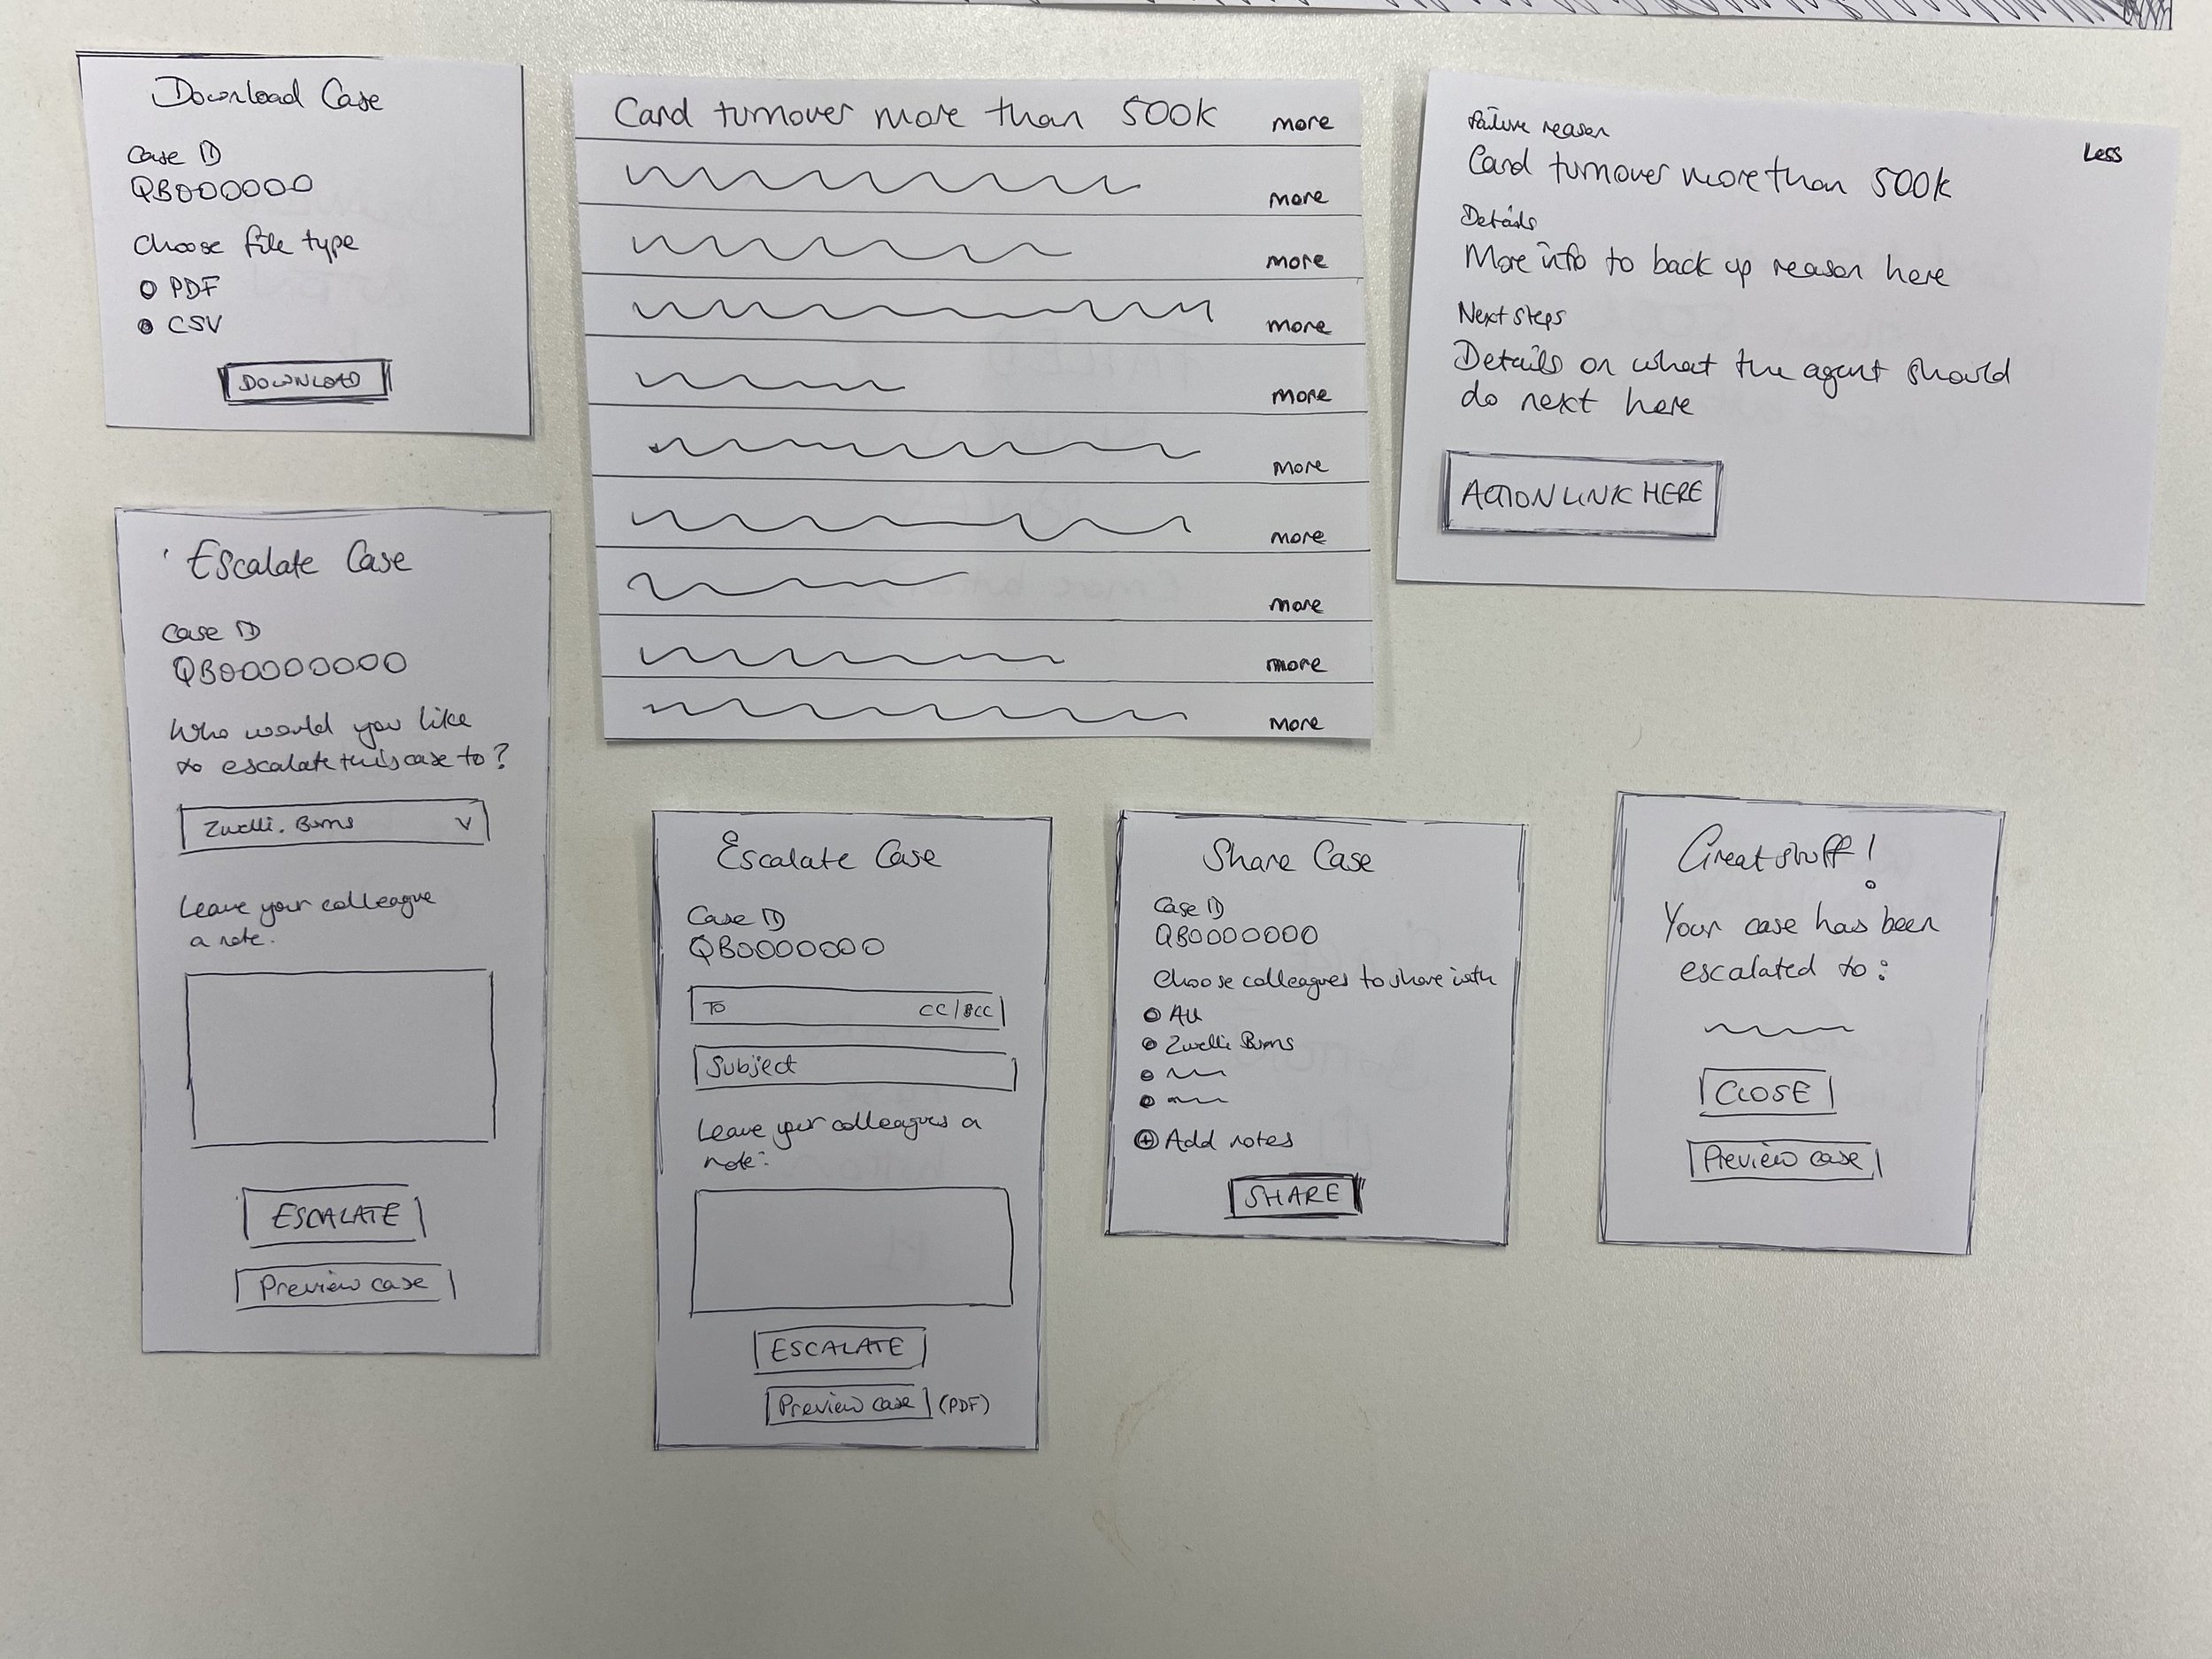 Download Case
Case ID
QB000000
Choose file type
PDF
CSV
DOWNLOAD
Card turnover more than 500k more
more
more
more
more
more
more
more
more
more
Failure reason
Less
Card turnover more than 500k
Details
More info to back up reason here
Next steps
Details on what the agent should
do next here
ACTION LINK HERE
Escalate Case
Case ID
QB00000000
Who would you like
to escalate this case to?
Zwelli. Burns V
Leave your colleague
a note.
ESCALATE
Preview case
Escalate Case
Case ID
QB0000000
To CC/BCC
Subject
Leave your colleagues a
note:
ESCALATE
Preview case (PDF)
Share Case
Case ID
QB0000000
Choose colleagues to share with
All
Zwelli Burns
Add notes
SHARE
Great stuff!
Your case has been
escalated to:
CLOSE
Preview case